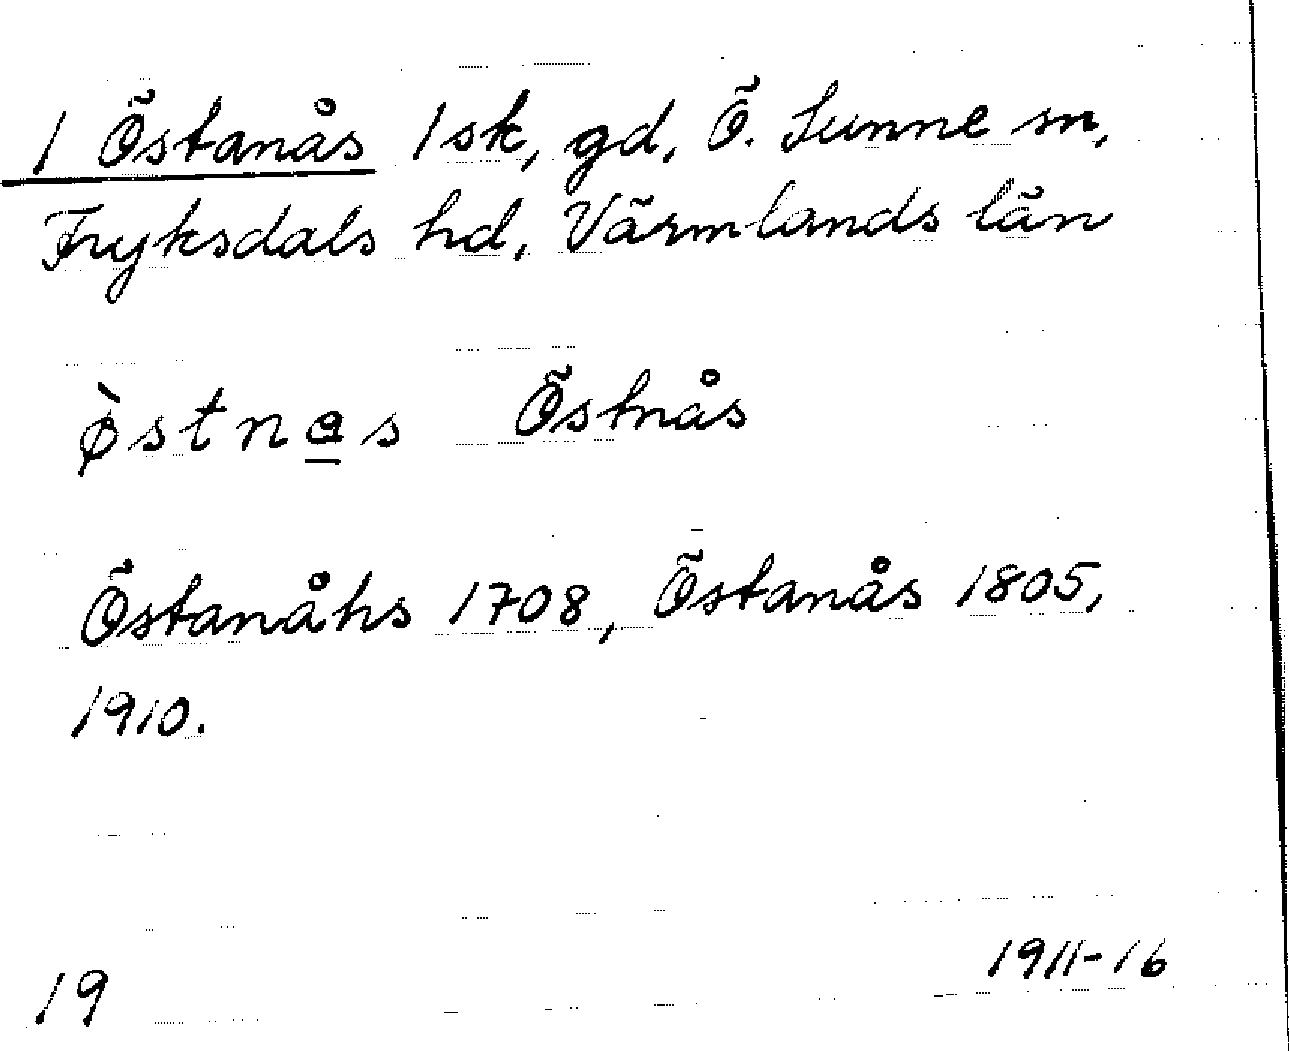 1 Östanås 1 sk, gd, Ö. Sunne sn,
Fryksdals hd, Värmlands län
ø̀stnas Östnås
Östanåhs 1708, Östanås 1805,
1910.
1911-16
19